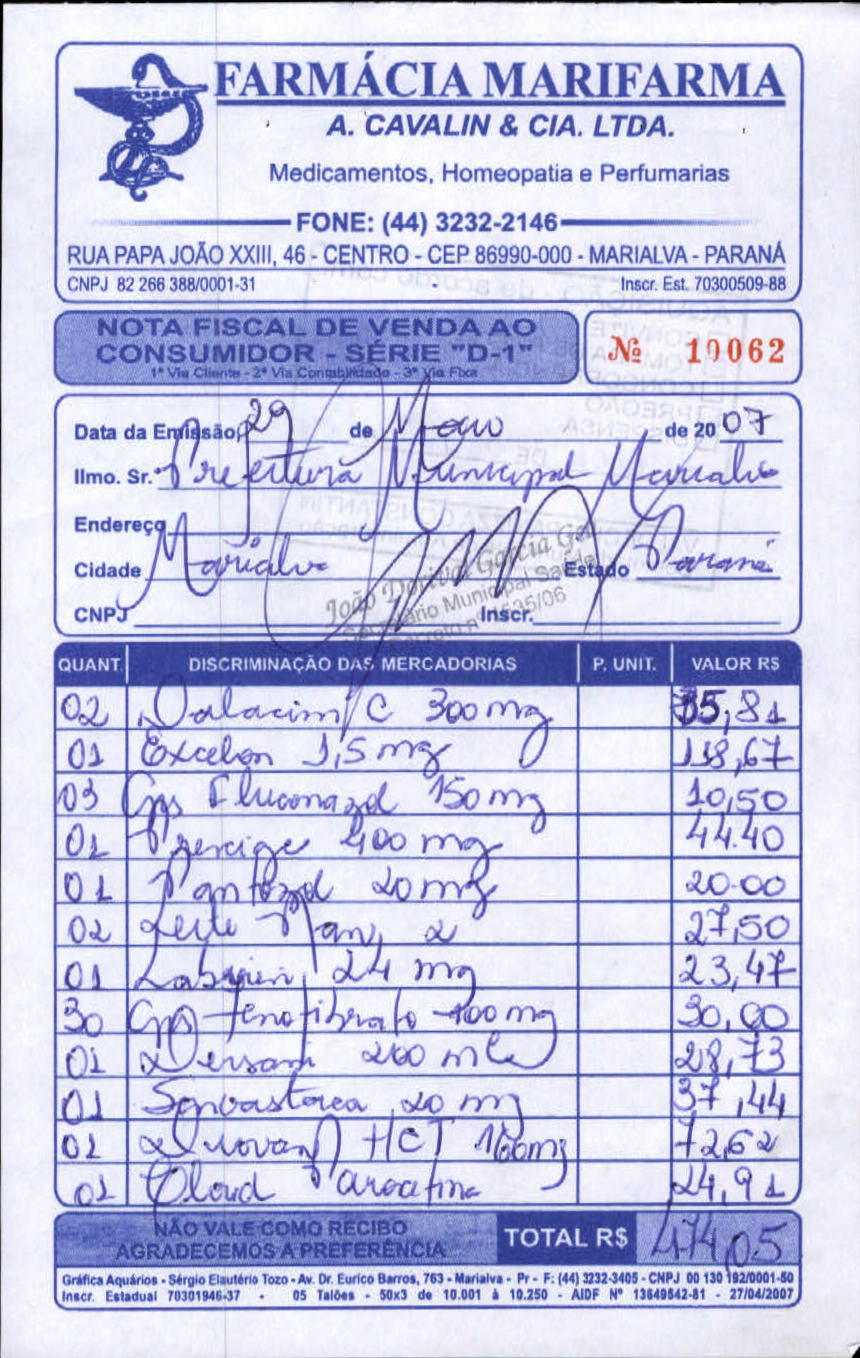 FARMÁCIA MARIFARMA
A. CAVALIN & CIA. LTDA.
Medicamentos, Homeopatia e Perfumarias
FONE: (44) 3232-2146
RUA PAPA JOÃO XXIII, 46 - CENTRO - CEP 86990-000 - MARIALVA - PARANÁ
CNPJ 82 266 388/0001-31 Inscr. Est. 70300509-88
NOTA FISCAL DE VENDA AO
CONSUMIDOR - SÉRIE "D-1"
1ª Via Cliente - 2ª Via Contabilidade - 3ª Via Fixa
Nº 10062
Data da Emissão, 29 de Maio de 20 07
Ilmo. Sr. Prefeitura Municipal Marialva
Endereço
Cidade Marialva Estado Paraná
João Dorival Garcia
Secretário Municipal Saúde
Decreto nº 1535/06
CNPJ Inscr.
QUANT. DISCRIMINAÇÃO DAS MERCADORIAS P. UNIT. VALOR R$
02 Dalacim C 300 mg 35,81
01 Excelon 1,5 mg 118,67
03 Cps Fluconazol 150 mg 10,50
01 400 mg 44.40
01 Pantozol 20 mg 20.00
02 Leite Nan 2 27,50
01 Labyrin 24 mg 23,47
30 Cps fenofibrato 100 mg 30,00
01 Dersani 200 ml 28,73
01 20 mg 37,44
01 Diovan HCT 160mg 72,62
01 24,91
NÃO VALE COMO RECIBO
AGRADECEMOS A PREFERÊNCIA
TOTAL R$ 474,05
Gráfica Aquários - Sérgio Elautério Tozo - Av. Dr. Eurico Barros, 763 - Marialva - Pr - F: (44) 3232-3405 - CNPJ 00 130 192/0001-50
Inscr. Estadual 70301946-37 - 05 Talões - 50x3 de 10.001 à 10.250 - AIDF Nº 13649842-81 - 27/04/2007